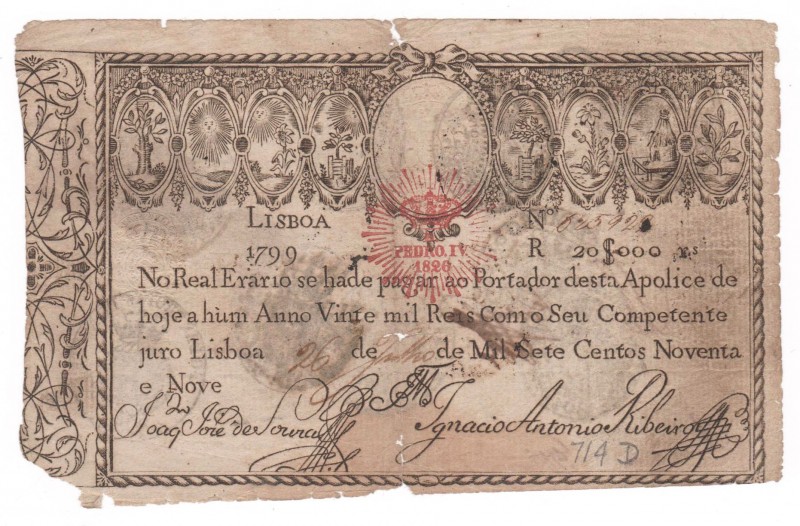 LISBOA
Nº
1799
R 20$000 rs
PEDRO. IV.
1826
No Real Erario se hade pagar ao Portador desta Apolice de
hoje a hùm Anno Vinte mil Reis Com o Seu Competente
juro Lisboa 26 de Julho de Mil Sete Centos Noventa
e Nove
Joaq José de Souza
Ignacio Antonio Ribeiro
714 D